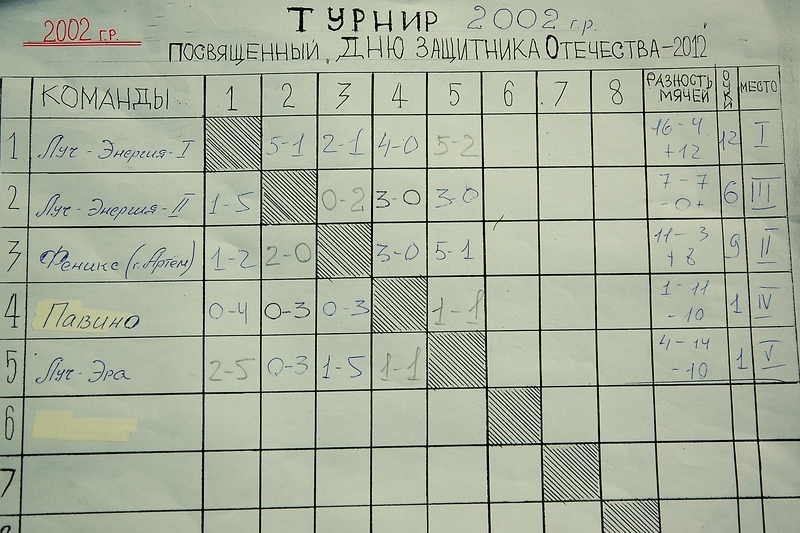 2002 г.р.
ТУРНИР 2002 г.р.
ПОСВЯЩЕННЫЙ ДНЮ ЗАЩИТНИКА ОТЕЧЕСТВА-2012
КОМАНДЫ 1 2 3 4 5 6 7 8 РАЗНОСТЬ МЯЧЕЙ ОЧКИ МЕСТО
1 Луч-Энергия-I 5-1 2-1 4-0 5-2 16-4 +12 12 I
2 Луч-Энергия-II 1-5 0-2 3-0 3-0 7-7 -0+ 6 III
3 Феникс (г. Артём) 1-2 2-0 3-0 5-1 11-3 +8 9 II
4 Павино 0-4 0-3 0-3 1-1 1-11 -10 1 IV
5 Луч-Эра 2-5 0-3 1-5 1-1 4-14 -10 1 V
6
7
8